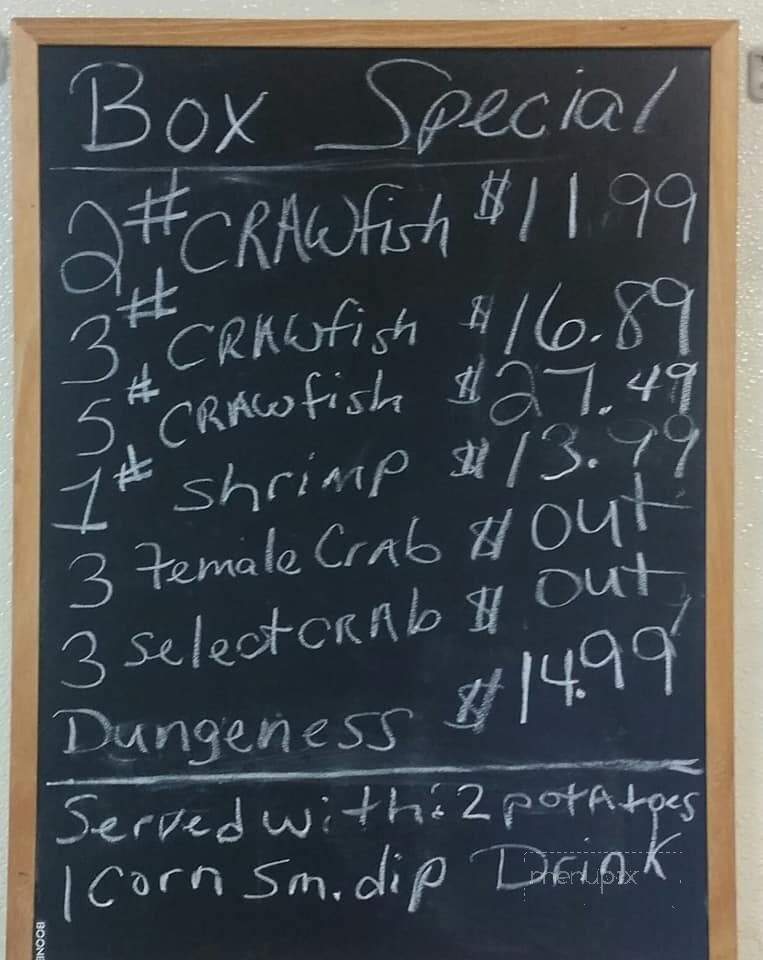 Box Special
2# CRAWfish $11.99
3# CRAWfish $16.89
5# CRAWfish $27.49
1# shrimp $13.99
3 Female CrAb $ out
3 select CRAb $ out
Dungeness $14.99
Served with: 2 potAtoes
1 Corn Sm. dip Drink
menupix
BOONE